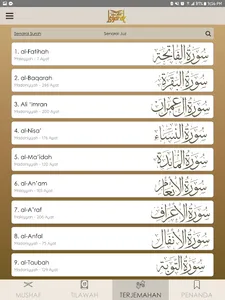 3:06 PM
Senarai Surah
Senarai Juz
1. al-Fatihah
سورة الفاتحة
Makkiyyah - 7 Ayat
2. al-Baqarah
سورة البقرة
Madaniyyah - 286 Ayat
3. Ali 'Imran
سورة آل عمران
Madaniyyah - 200 Ayat
4. al-Nisa'
سورة النساء
Madaniyyah - 176 Ayat
5. al-Ma'idah
سورة المائدة
Madaniyyah - 120 Ayat
6. al-An'am
سورة الأنعام
Makkiyyah - 165 Ayat
7. al-A'raf
سورة الأعراف
Makkiyyah - 206 Ayat
8. al-Anfal
سورة الأنفال
Madaniyyah - 75 Ayat
9. al-Taubah
سورة التوبة
MUSHAF
TILAWAH
TERJEMAHAN
PENANDA